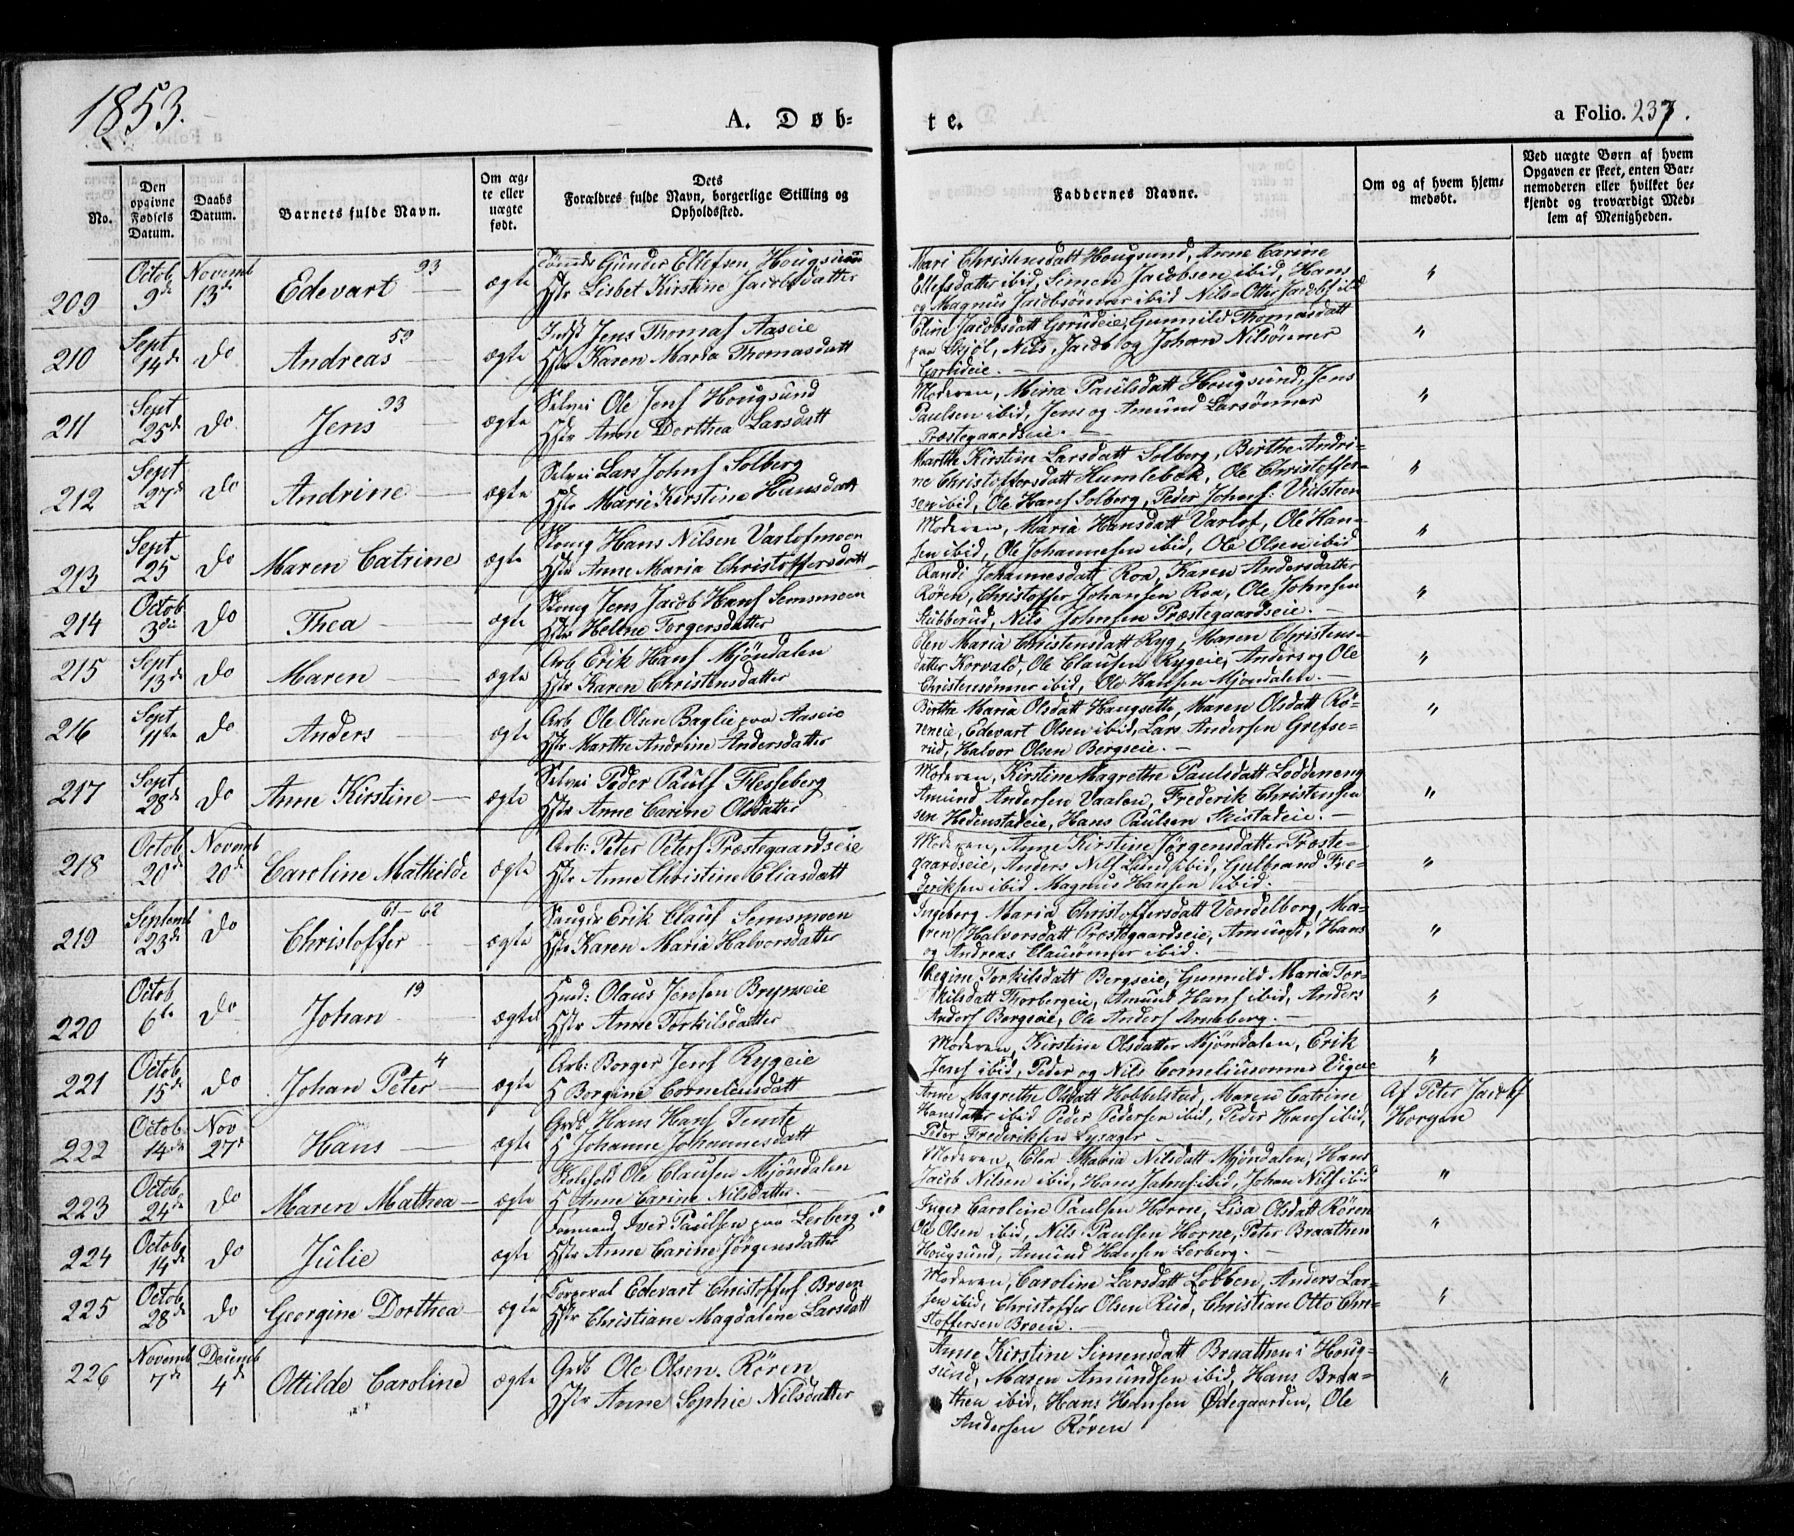 1853.
A. Døb-
te.
a Folio. 237.
No.
Den opgivne Fødsels Datum.
Daabs Datum.
Barnets fulde Navn.
Om ægte eller uægte født.
Dets Forældres fulde Navn, borgerlige Stilling og Opholdssted.
Faddernes Navne.
Om og af hvem hjemmedøbt.
Ved uægte Børn af hvem Opgaven er skeet, enten Barnemoderen eller hvilket bekjendt og troværdigt Medlem af Menigheden.
209 Octob 9de Novemb 13de Edevart 93 ægte Gunder Ellefsen Hougsund
Hstr Lisbet Kirstine Jacobsdatter
Mari Christensdatt Hougsund, Anne Carine
Ellefsdatter ibid, Simen Jacobsen ibid, Hans
og Magnus Jacobsønner ibid Nils Otter Jacobsf ibid
"
210 Sept 14de do Andreas 53 ægte Jens Thomasf Aaseie
Hstr Karen Maria Thomasdatt
Eline Jacobsdatt Gorudeie, Gunnild Thomasdatt
paa Skjøl, Nils, Jacob og Johan Nilsønner
Gorudeie.
"
211 Sept 25de do Jens 93 ægte Selvei Ole Jensf Hougsund
Hstr Anne Dorthea Larsdatt
Moderen, Mina Paulsdatt Hougsund, Jens
Paulsen ibid, Jens og Amund Larsønner
Præstegaardseie.
"
212 Sept 27de do Andrine ægte Selvei Lars Johnsf Solberg
Hstr Marie Kirstine Hansdatt
Marthe Kirstine Larsdatt Solberg, Birthe Andri-
ne Christoffersdatt Humlebæk, Ole Christoffer-
sen ibid, Ole Hansf Solberg, Peder Johnsf:
"
213 Sept 25 do Maren Catrine ægte Hans Nilsen Varlofmoen
Hstr Anne Maria Christoffersdatt
Moderen, Maria Hansdatt Varlof, Ole Han-
sen ibid, Ole Johannesen ibid, Ole Olsen ibid
"
214 Octob 3die do Thea ægte Jens Jacob Hansf Semsmoen
Hstr Helene Torgersdatter
Randi Johannesdatt Roa, Karen Andersdatter
Røren, Christoffer Johansen Roa, Ole Johnsen
Stubberud, Nils Johnsen Præstegaardseie.
"
215 Sept 13de do Maren ægte Arb Erik Hansf Mjøndalen
Hstr Karen Christensdatter
Elen Maria Christensdatt Ryg, Maren Christens-
datter Korvald, Ole Clausen Rygeie, Anders og Ole
Christensønner ibid, Ole Hansen Mjøndalen.
"
216 Sept 11te do Anders ægte Arb Ole Olsen Baglie paa Aaseie
Hstr Marthe Andrine Andersdatter
Birthe Maria Olsdatt Haugsette, Karen Olsdatt Rø-
reneie, Edevart Olsen ibid, Lars Andersen Grefse-
rud, Halvor Olsen Bergseie.
"
217 Sept 28de do Anne Kirstine ægte Selvei Peder Paulsf Flesseberg
Hstr Anne Carine Olsdatter
Moderen, Kirstine Magrethe Paulsdatt Loddeneng
Amund Andersen Vaalen, Frederik Christensen
Hedenstadeie, Hans Paulsen Skistadeie.
"
218 Octob 20de Novemb 20de Caroline Mathilde ægte Arb: Peter Petersf. Præstegaardseie
Hstr Anne Christine Eliasdatt
Moderen, Anne Kirstine Jørgensdatter Præste-
gaardseie, Anders Nilsf Lund ibid, Gulbrand Fre-
deriksen ibid Magnus Hansen ibid.
"
219 Septemb 23de do Christoffer 61-62 ægte Erik Clausf Semsmoen
Hstr Karen Maria Halvorsdatter
Ingeberg Maria Christoffersdatt Vendelborg, Ma-
ren Halvorsdatt Præstegaardseie, Amund, Hans
og Andreas Clausønner ibid.
"
220 Octob 6te do Johan 19 ægte Huusm: Olaus Jensen Brynseie
Hstr Anne Torkilsdatter
Regine Torkilsdatt Bergseie, Gunnild Maria Tor-
kilsdatt Thorbergeie, Amund Hansf ibid, Anders
Andersf Bergseie, Ole Andersf Arneberg.
"
221 Octob 15de do Johan Peter 4 ægte Arb: Borger Jensf Rygeie
H Borgine Corneliusdatt
Moderen, Kirstine Olsdatter Mjøndalen, Erik
Jensf ibid, Peder og Nils Corneliusønner Vigeie
"
222 Octob 14de Nov 27de Hans ægte Grdb Hans Hansf Temte
H Johanne Johannesdatt
Anne Magrethe Olsdatt Hobbelstad, Maren Catrine
Hansdatter ibid, Peder Pedersen ibid, Peder Hansf ibid,
Peder Frederiksen Lysager
Af Peter Jacobsf
Horgen
223 Octob 24de do Maren Mathea ægte Skolehold Ole Clausen Mjøndalen
H Anne Carine Nilsdatter.
Moderen, Elen Maria Nilsdatt Mjøndalen, Hans
Jacob Nilsen ibid, Hans Jahnsf ibid, Johan Nilsf ibid
"
224 Octob 14de do Julie ægte Formand Iver Paulsen paa Lerberg
Hstr Anne Carine Jørgensdatter
Inger Caroline Paulsen Horne, Lisa Olsdatt Røren
Ole Olsen ibid, Nils Paulsen Horne, Peter Braathen
Hougsund, Amund Hansen Lerberg.
"
225 Octob 28de do Georgine Dorthea ægte Corporal Edevart Christoffersf Broen
Hstr Christiane Magdalene Larsdatt
Moderen, Caroline Larsdatt Lobben, Anders Lar-
sen ibid, Christoffer Olsen Rud, Christian Otto Chri-
stoffersen Broen.
"
226 Novemb 7de Decemb 4de Ottilde Caroline ægte Grdb Ole Olsen Røren
Hstr Anne Sophie Nilsdatter
Anne Kirstine Simensdatt Braathen i Houg-
sund, Maren Amundsen ibid, Hans Braa-
then ibid, Hans Hansen Ødegaarden, Ole
Andersen Røren
"